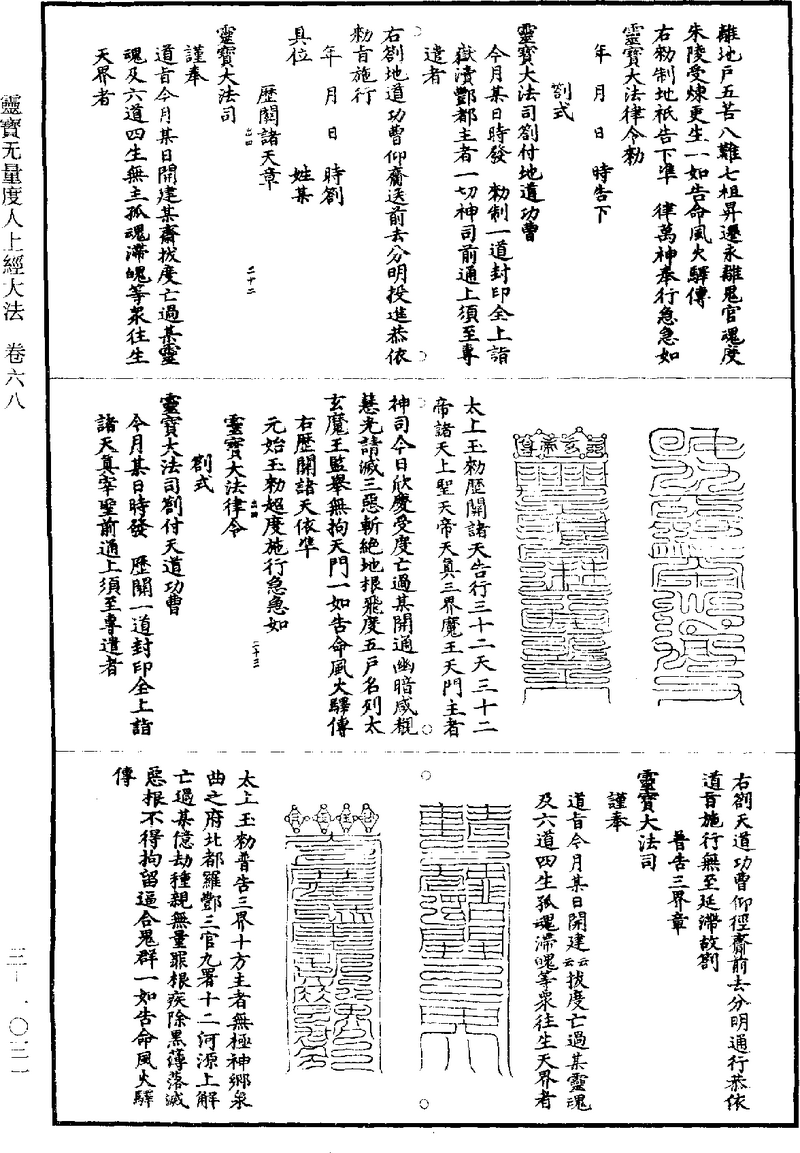 離地戶五苦八難七祖昇遷永離鬼官魂度
朱陵受煉更生一如告命風火驛傳
右勑制地祇告下準　律萬神奉行急急如
靈寶大法律令勑
年　月　日　時告下
劄式
靈寶大法司劄付地道功曹
今月某日時發　勑制一道封印全上詣
嶽瀆酆都主者一切神司前通上須至專
遣者
右劄地道功曹仰齎送前去分明投進恭依
勑旨施行
年　月　日　時劄
具位　　　姓某
歷關諸天章
靈寶大法司
謹奉
道旨今月某日開建某齋拔度亡過某靈
魂及六道四生無主孤魂滯魄等衆往生
天界者
二十二
太上玉勑歷關諸天告行三十二天三十二
帝諸天上聖天帝天真三界魔王天門主者
神司今日欣慶受度亡過某開通幽暗咸覩
慧光請滅三惡斬絕地根飛度五戶名列太
玄魔王監舉無拘天門一如告命風火驛傳
右歷關諸天依準
元始玉勑超度施行急急如
靈寶大法律令
劄式
靈寶大法司劄付天道功曹
今月某日時發　歷關一道封印全上詣
諸天真宰聖前通上須至專遣者
二十三
右劄天道功曹仰徑齎前去分明通行恭依
道旨施行無至延滯故劄
普告三界章
靈寶大法司
謹奉
道旨今月某日開建云云拔度亡過某靈魂
及六道四生孤魂滯魄等衆往生天界者
太上玉勑普告三界十方主者無極神鄉泉
曲之府北都羅酆三官九署十二河源上解
亡過某億劫種親無量罪根疾除黑薄落滅
惡根不得拘留逼合鬼群一如告命風火驛
傳
靈寶无量度人上經大法　卷六八
三－一〇三一